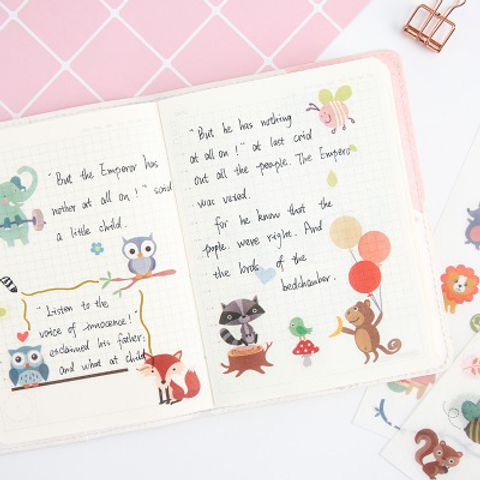 "But the Emperor has
nother at all on!" said
a little child.
"Listen to the
voice of innocence!"
exclaimed his father;
and what at child
"But he has nothing
at all on!" at last cried
out all the people. The Empero
was vexed.
for he know that the
people were right. And
the lords of the
bedchamber.